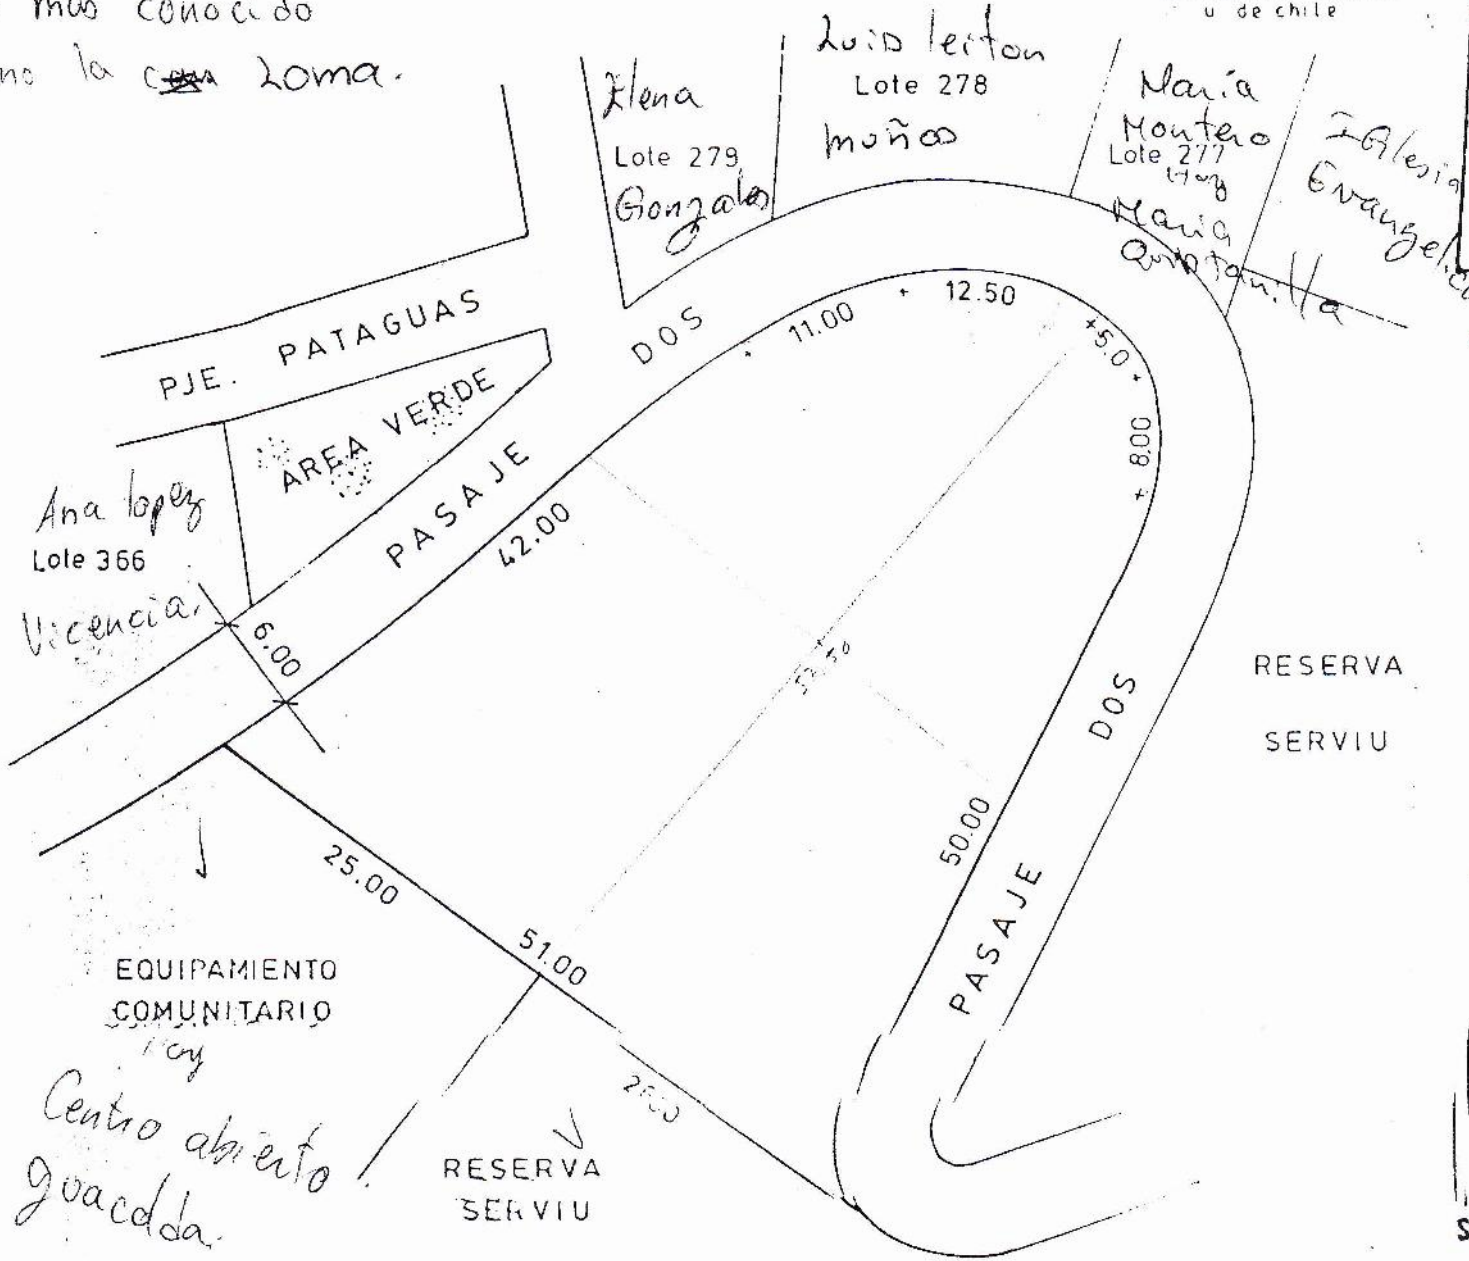 mas conocido
la Loma.
u de chile
Elena
Lote 279
Gonzales
Luis leiton
Lote 278
muños
María
Montero
Lote 277
Hoy
Maria
Quintanilla
Iglesia
Evangelica
PJE. PATAGUAS
AREA VERDE
PASAJE DOS
11.00
12.50
5.0
8.00
42.00
Ana lopez
Lote 366
Vicencia.
6.00
52.50
RESERVA
SERVIU
PASAJE DOS
50.00
25.00
51.00
EQUIPAMIENTO
COMUNITARIO
Hoy
Centro abierto
guacolda.
RESERVA
SERVIU
S